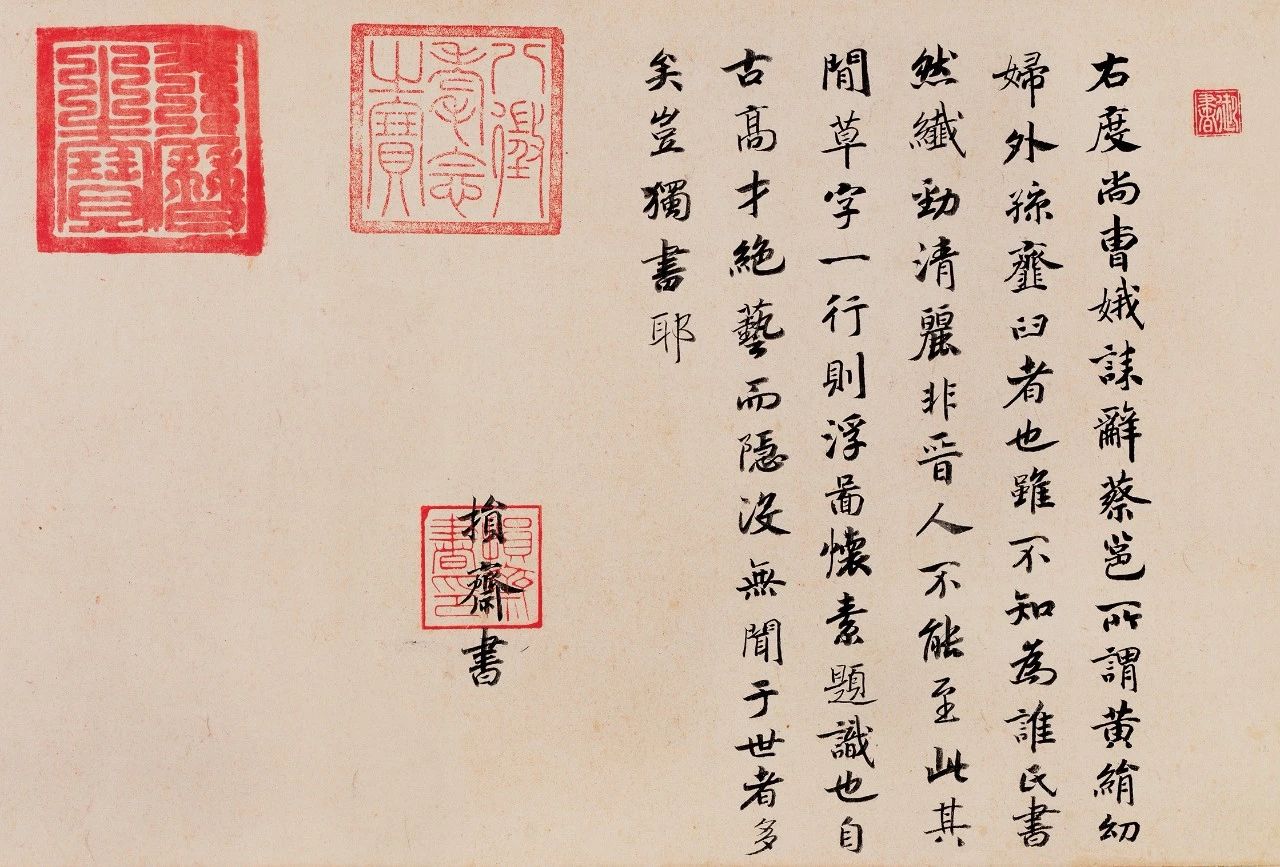 御書
右度尚曹娥誄辭蔡邕所謂黃絹幼
婦外孫虀臼者也雖不知為誰氏書
然纖勁清麗非晉人不能至此其
間草字一行則浮啚懷素題識也自
古高才絕藝而隱沒無聞于世者多
矣豈獨書耶
損齋書
損齋書印
八徵耄念之寶